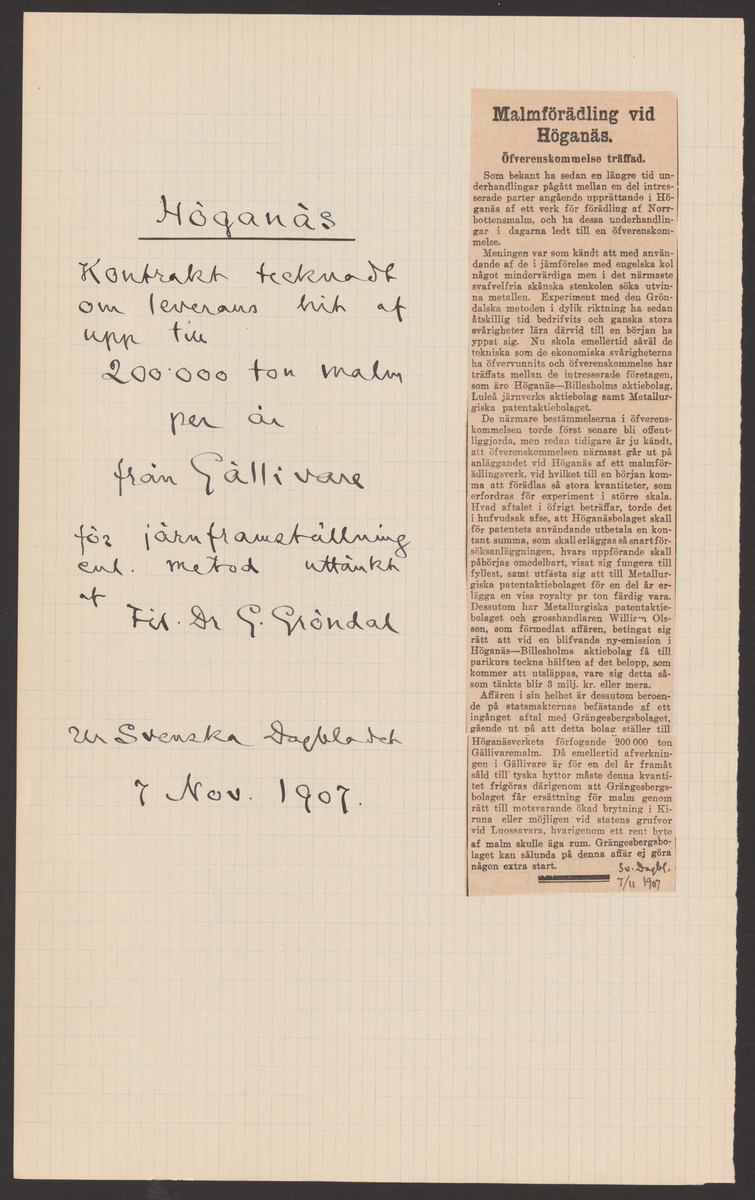 Höganäs
Kontrakt tecknadt
om leverans hit af
upp till
200.000 ton malm
per år
från Gällivare
för järnframställning
enl. metod uttänkt
af
Fil. Dr G. Gröndal
Ur Svenska Dagbladet
7 Nov. 1907.
Malmförädling vid
Höganäs.
Öfverenskommelse träffad.
Som bekant ha sedan en längre tid un-
derhandlingar pågått mellan en del intres-
serade parter angående upprättande i Hö-
ganäs af ett verk för förädling af Norr-
bottensmalm, och ha dessa underhandlin-
gar i dagarna ledt till en öfverenskom-
melse.
Meningen var som kändt att med använ-
dande af de i jämförelse med engelska kol
något mindervärdiga men i det närmaste
svafvelfria skånska stenkolen söka utvin-
na metallen. Experiment med den Grön-
dalska metoden i dylik riktning ha sedan
åtskillig tid bedrifvits och ganska stora
svårigheter lära därvid till en början ha
yppat sig. Nu skola emellertid såväl de
tekniska som de ekonomiska svårigheterna
ha öfvervunnits och öfverenskommelse har
träffats mellan de intresserade företagen,
som äro Höganäs—Billesholms aktiebolag,
Luleå järnverks aktiebolag samt Metallur-
giska patentaktiebolaget.
De närmare bestämmelserna i öfverens-
kommelsen torde först senare bli offent-
liggjorda, men redan tidigare är ju kändt,
att öfverenskommelsen närmast går ut på
anläggandet vid Höganäs af ett malmför-
ädlingsverk, vid hvilket till en början kom-
ma att förädlas så stora kvantiteter, som
erfordras för experiment i större skala.
Hvad aftalet i öfrigt beträffar, torde det
i hufvudsak afse, att Höganäsbolaget skall
för patentets användande utbetala en kon-
tant summa, som skall erläggas så snart för-
söksanläggningen, hvars uppförande skall
påbörjas omedelbart, visat sig fungera till
fyllest, samt utfästa sig att till Metallur-
giska patentaktiebolaget för en del år er-
lägga en viss royalty pr ton färdig vara.
Dessutom har Metallurgiska patentaktie-
bolaget och grosshandlaren William Ols-
son, som förmedlat affären, betingat sig
rätt att vid en blifvande ny-emission i
Höganäs—Billesholms aktiebolag få till
parikurs teckna hälften af det belopp, som
kommer att utsläppas, vare sig detta så-
som tänkts blir 3 milj. kr. eller mera.
Affären i sin helhet är dessutom beroen-
de på statsmakternas befästande af ett
ingånget aftal med Grängesbergsbolaget,
gående ut på att detta bolag ställer till
Höganäsverkets förfogande 200 000 ton
Gällivaremalm. Då emellertid afverknin-
gen i Gällivare är för en del år framåt
såld till tyska hyttor måste denna kvanti-
tet frigöras därigenom att Grängesbergs-
bolaget får ersättning för malm genom
rätt till motsvarande ökad brytning i Ki-
runa eller möjligen vid statens grufvor
vid Luossavara, hvarigenom ett rent byte
af malm skulle äga rum. Grängesbergsbo-
laget kan sålunda på denna affär ej göra
någon extra start.
Sv. Dagbl.
7/11 1907